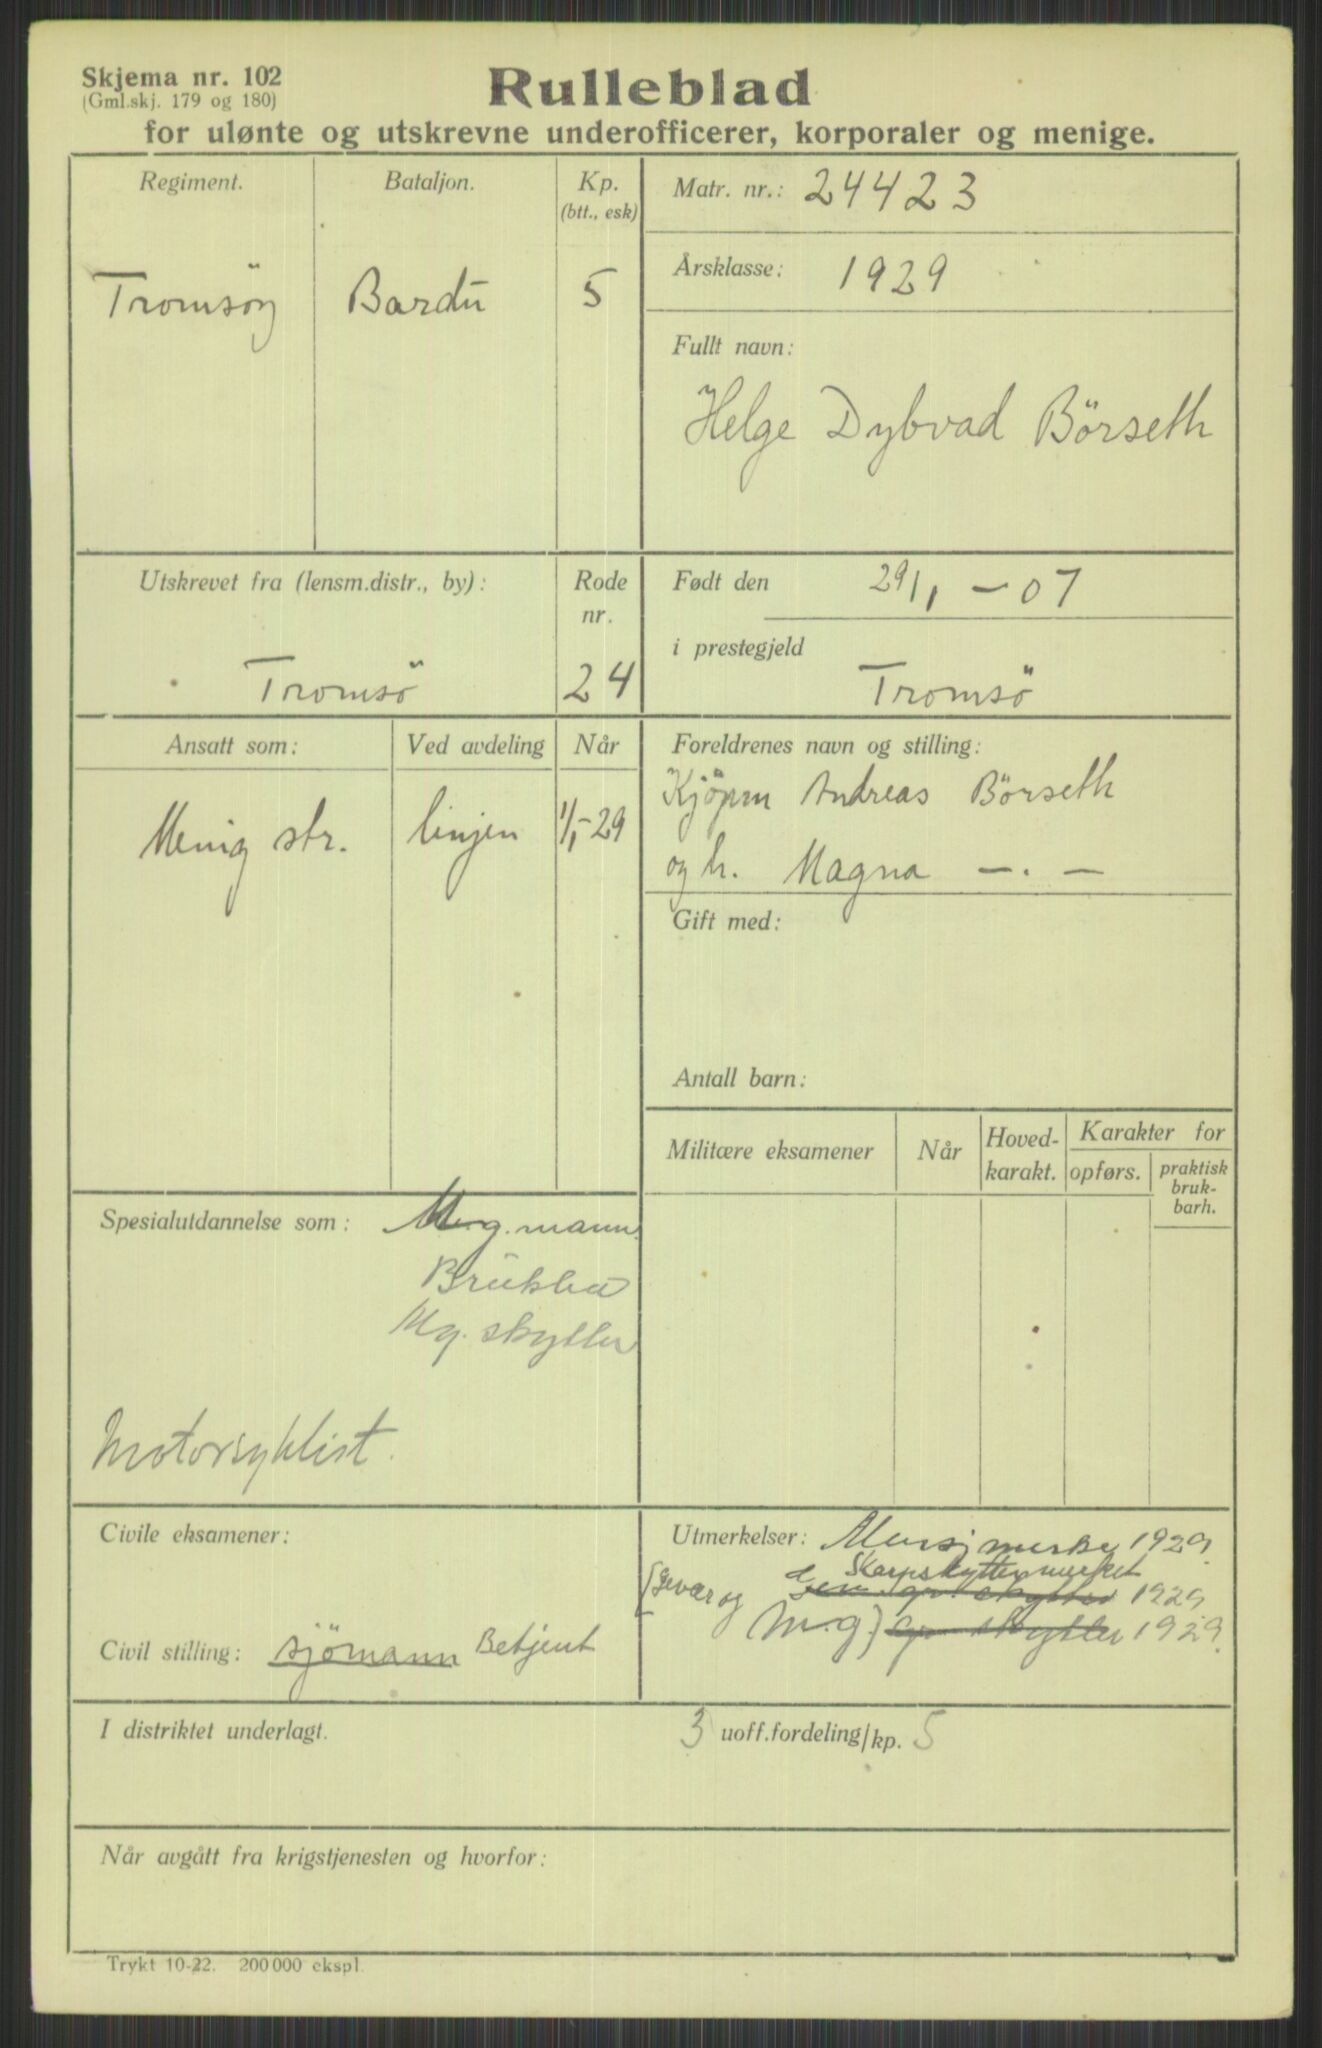 Skjema nr. 102
(Gml.skj. 179 og 180)
Rulleblad
for ulønte og utskrevne underofficerer, korporaler og menige.
Regiment.
Bataljon.
Kp.
(btt., esk)
Tromsöy
Bardu
5
Matr. nr.: 24423
Årsklasse: 1929
Fullt navn:
Helge Dybvad Börseth
Utskrevet fra (lensm.distr., by):
Tromsö
Rode
nr.
24
Født den 29/1 - 07
i prestegjeld
Tromsö
Ansatt som:
Ved avdeling
Når
Menig str.
linjen
1/1-29
Foreldrenes navn og stilling:
Kjöpm Andreas Börseth
og h. Magna —.—
Gift med:
Antall barn:
Militære eksamener
Når
Hoved-
karakt.
Karakter for
opførs.
praktisk
bruk-
barh.
Spesialutdannelse som: M.g. mann.
Mg. skytter
Motorsyklist.
Civile eksamener:
Civil stilling: sjömann Betjent
Utmerkelser: Marsjmerke 1929.
Skarpskyttermerket
[Gevær og 1929
M.g.) gv. skytter 1929.
I distriktet underlagt.
3 uoff.fordeling/kp. 5
Når avgått fra krigstjenesten og hvorfor:
Trykt 10-22. 200 000 ekspl.